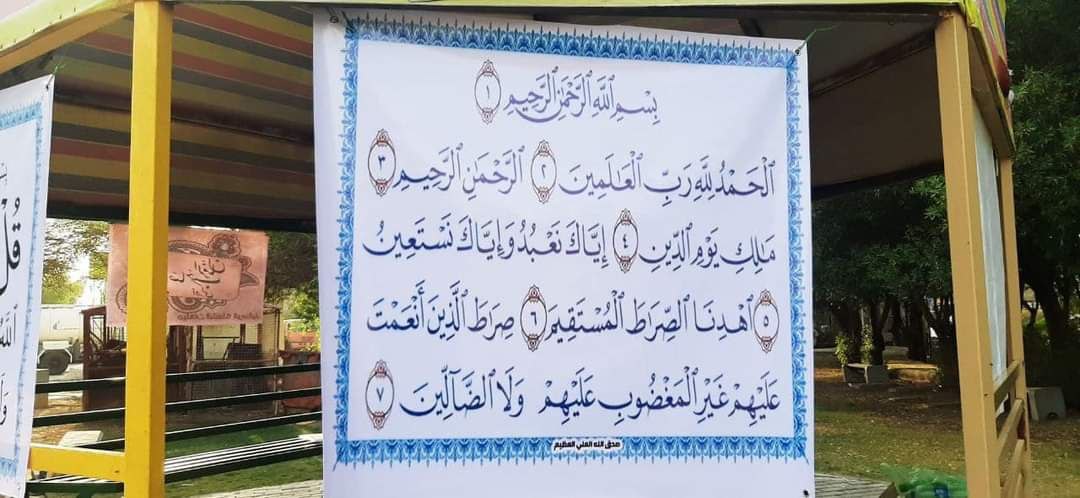 بِسْمِ ٱللَّهِ ٱلرَّحْمَٰنِ ٱلرَّحِيمِ ١
ٱلْحَمْدُ لِلَّهِ رَبِّ ٱلْعَٰلَمِينَ ٢ ٱلرَّحْمَٰنِ ٱلرَّحِيمِ ٣
مَٰلِكِ يَوْمِ ٱلدِّينِ ٤ إِيَّاكَ نَعْبُدُ وَإِيَّاكَ نَسْتَعِينُ
٥ ٱهْدِنَا ٱلصِّرَٰطَ ٱلْمُسْتَقِيمَ ٦ صِرَٰطَ ٱلَّذِينَ أَنْعَمْتَ
عَلَيْهِمْ غَيْرِ ٱلْمَغْضُوبِ عَلَيْهِمْ وَلَا ٱلضَّآلِّينَ ٧
صدق الله العلي العظيم
قُلْ
ٱللَّهُ